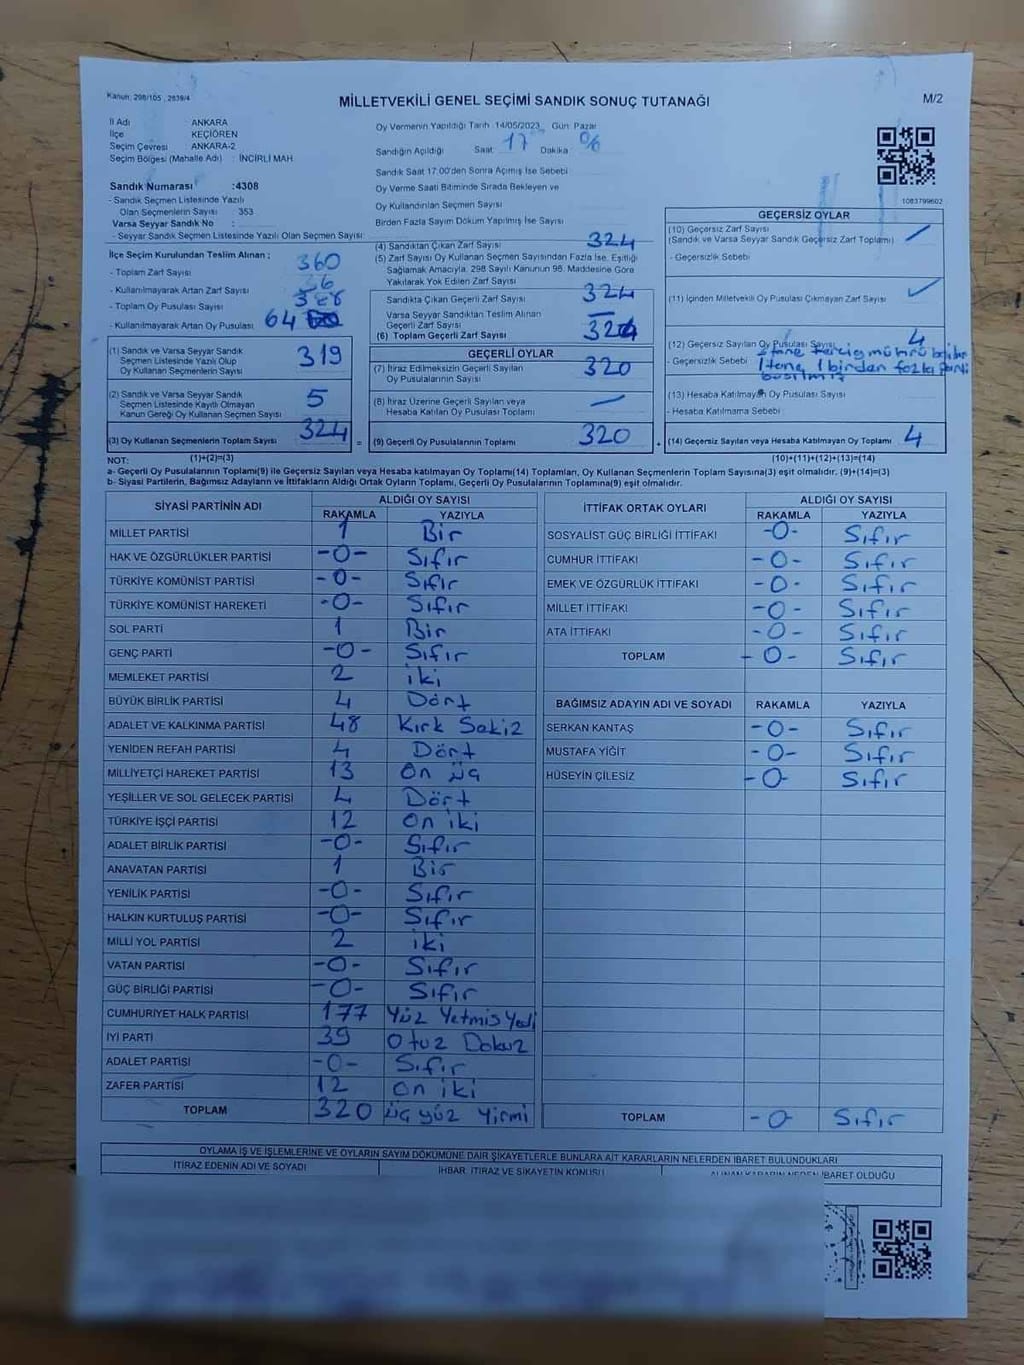 Kanun: 298/105 , 2839/4
MİLLETVEKİLİ GENEL SEÇİMİ SANDIK SONUÇ TUTANAĞI
M/2
İl Adı : ANKARA
İlçe : KEÇİÖREN
Seçim Çevresi : ANKARA-2
Seçim Bölgesi (Mahalle Adı) : İNCİRLİ MAH.
Sandık Numarası :4308
- Sandık Seçmen Listesinde Yazılı
Olan Seçmenlerin Sayısı : 353
Varsa Seyyar Sandık No :
- Seyyar Sandık Seçmen Listesinde Yazılı Olan Seçmen Sayısı:
Oy Vermenin Yapıldığı Tarih :14/05/2023 Gün: Pazar
Sandığın Açıldığı Saat 17 Dakika
Sandık Saat 17.00'den Sonra Açılmış İse Sebebi
Oy Verme Saati Bitiminde Sırada Bekleyen ve
Oy Kullandırılan Seçmen Sayısı
Birden Fazla Sayım Döküm Yapılmış İse Sayısı
1083799602
İlçe Seçim Kurulundan Teslim Alınan ;
- Toplam Zarf Sayısı 360
- Kullanılmayarak Artan Zarf Sayısı 36
- Toplam Oy Pusulası Sayısı
- Kullanılmayarak Artan Oy Pusulası 64
(1) Sandık ve Varsa Seyyar Sandık
Seçmen Listesinde Yazılı Olup
Oy Kullanan Seçmenlerin Sayısı 319
(2) Sandık ve Varsa Seyyar Sandık
Seçmen Listesinde Kayıtlı Olmayan
Kanun Gereği Oy Kullanan Seçmen Sayısı 5
(3) Oy Kullanan Seçmenlerin Toplam Sayısı 324 =
(4) Sandıktan Çıkan Zarf Sayısı 324
(5) Zarf Sayısı Oy Kullanan Seçmen Sayısından Fazla İse, Eşitliği
Sağlamak Amacıyla, 298 Sayılı Kanunun 98. Maddesine Göre
Yakılarak Yok Edilen Zarf Sayısı
Sandıkta Çıkan Geçerli Zarf Sayısı 324
Varsa Seyyar Sandıktan Teslim Alınan
Geçerli Zarf Sayısı —
(6) Toplam Geçerli Zarf Sayısı 324
GEÇERLİ OYLAR
(7) İtiraz Edilmeksizin Geçerli Sayılan
Oy Pusulalarının Sayısı 320
(8) İtiraz Üzerine Geçerli Sayılan veya
Hesaba Katılan Oy Pusulası Toplamı —
(9) Geçerli Oy Pusulalarının Toplamı 320 +
GEÇERSİZ OYLAR
(10) Geçersiz Zarf Sayısı
(Sandık ve Varsa Seyyar Sandık Geçersiz Zarf Toplamı)
- Geçersizlik Sebebi
(11) İçinden Milletvekili Oy Pusulası Çıkmayan Zarf Sayısı
(12) Geçersiz Sayılan Oy Pusulası Sayısı 4
- Geçersizlik Sebebi tane tercig mührü
1 tane 1 birden fazla parti
basılmış
(13) Hesaba Katılmayan Oy Pusulası Sayısı
- Hesaba Katılmama Sebebi
(14) Geçersiz Sayılan veya Hesaba Katılmayan Oy Toplamı 4
NOT: (1)+(2)=(3)
(10)+(11)+(12)+(13)=(14)
a- Geçerli Oy Pusulalarının Toplamı(9) ile Geçersiz Sayılan veya Hesaba katılmayan Oy Toplamı(14) Toplamları, Oy Kullanan Seçmenlerin Toplam Sayısına(3) eşit olmalıdır. (9)+(14)=(3)
b- Siyasi Partilerin, Bağımsız Adayların ve İttifakların Aldığı Ortak Oyların Toplamı, Geçerli Oy Pusulalarının Toplamına(9) eşit olmalıdır.
SİYASİ PARTİNİN ADI ALDIĞI OY SAYISI
RAKAMLA YAZIYLA
MİLLET PARTİSİ 1 Bir
HAK VE ÖZGÜRLÜKLER PARTİSİ -0- Sıfır
TÜRKİYE KOMÜNİST PARTİSİ -0- Sıfır
TÜRKİYE KOMÜNİST HAREKETİ -0- Sıfır
SOL PARTİ 1 Bir
GENÇ PARTİ -0- Sıfır
MEMLEKET PARTİSİ 2 iki
BÜYÜK BİRLİK PARTİSİ 4 Dört
ADALET VE KALKINMA PARTİSİ 48 Kırk Sekiz
YENİDEN REFAH PARTİSİ 4 Dört
MİLLİYETÇİ HAREKET PARTİSİ 13 On üç
YEŞİLLER VE SOL GELECEK PARTİSİ 4 Dört
TÜRKİYE İŞÇİ PARTİSİ 12 On iki
ADALET BİRLİK PARTİSİ -0- Sıfır
ANAVATAN PARTİSİ 1 Bir
YENİLİK PARTİSİ -0- Sıfır
HALKIN KURTULUŞ PARTİSİ -0- Sıfır
MİLLİ YOL PARTİSİ 2 iki
VATAN PARTİSİ -0- Sıfır
GÜÇ BİRLİĞİ PARTİSİ -0- Sıfır
CUMHURİYET HALK PARTİSİ 177 Yüz Yetmiş Yedi
İYİ PARTİ 39 Otuz Dokuz
ADALET PARTİSİ -0- Sıfır
ZAFER PARTİSİ 12 On iki
TOPLAM 320 üç yüz Yirmi
İTTİFAK ORTAK OYLARI ALDIĞI OY SAYISI
RAKAMLA YAZIYLA
SOSYALİST GÜÇ BİRLİĞİ İTTİFAKI -0- Sıfır
CUMHUR İTTİFAKI -0- Sıfır
EMEK VE ÖZGÜRLÜK İTTİFAKI -0- Sıfır
MİLLET İTTİFAKI -0- Sıfır
ATA İTTİFAKI -0- Sıfır
TOPLAM -0- Sıfır
BAĞIMSIZ ADAYIN ADI VE SOYADI RAKAMLA YAZIYLA
SERKAN KANTAŞ -0- Sıfır
MUSTAFA YİĞİT -0- Sıfır
HÜSEYİN ÇİLESİZ -0- Sıfır
TOPLAM -0- Sıfır
OYLAMA İŞ VE İŞLEMLERİNE VE OYLARIN SAYIM DÖKÜMÜNE DAİR ŞİKAYETLERLE BUNLARA AİT KARARLARIN NELERDEN İBARET BULUNDUKLARI
İTİRAZ EDENİN ADI VE SOYADI İHBAR, İTİRAZ VE ŞİKAYETİN KONUSU ALINAN KARARIN NEDEN İBARET OLDUĞU